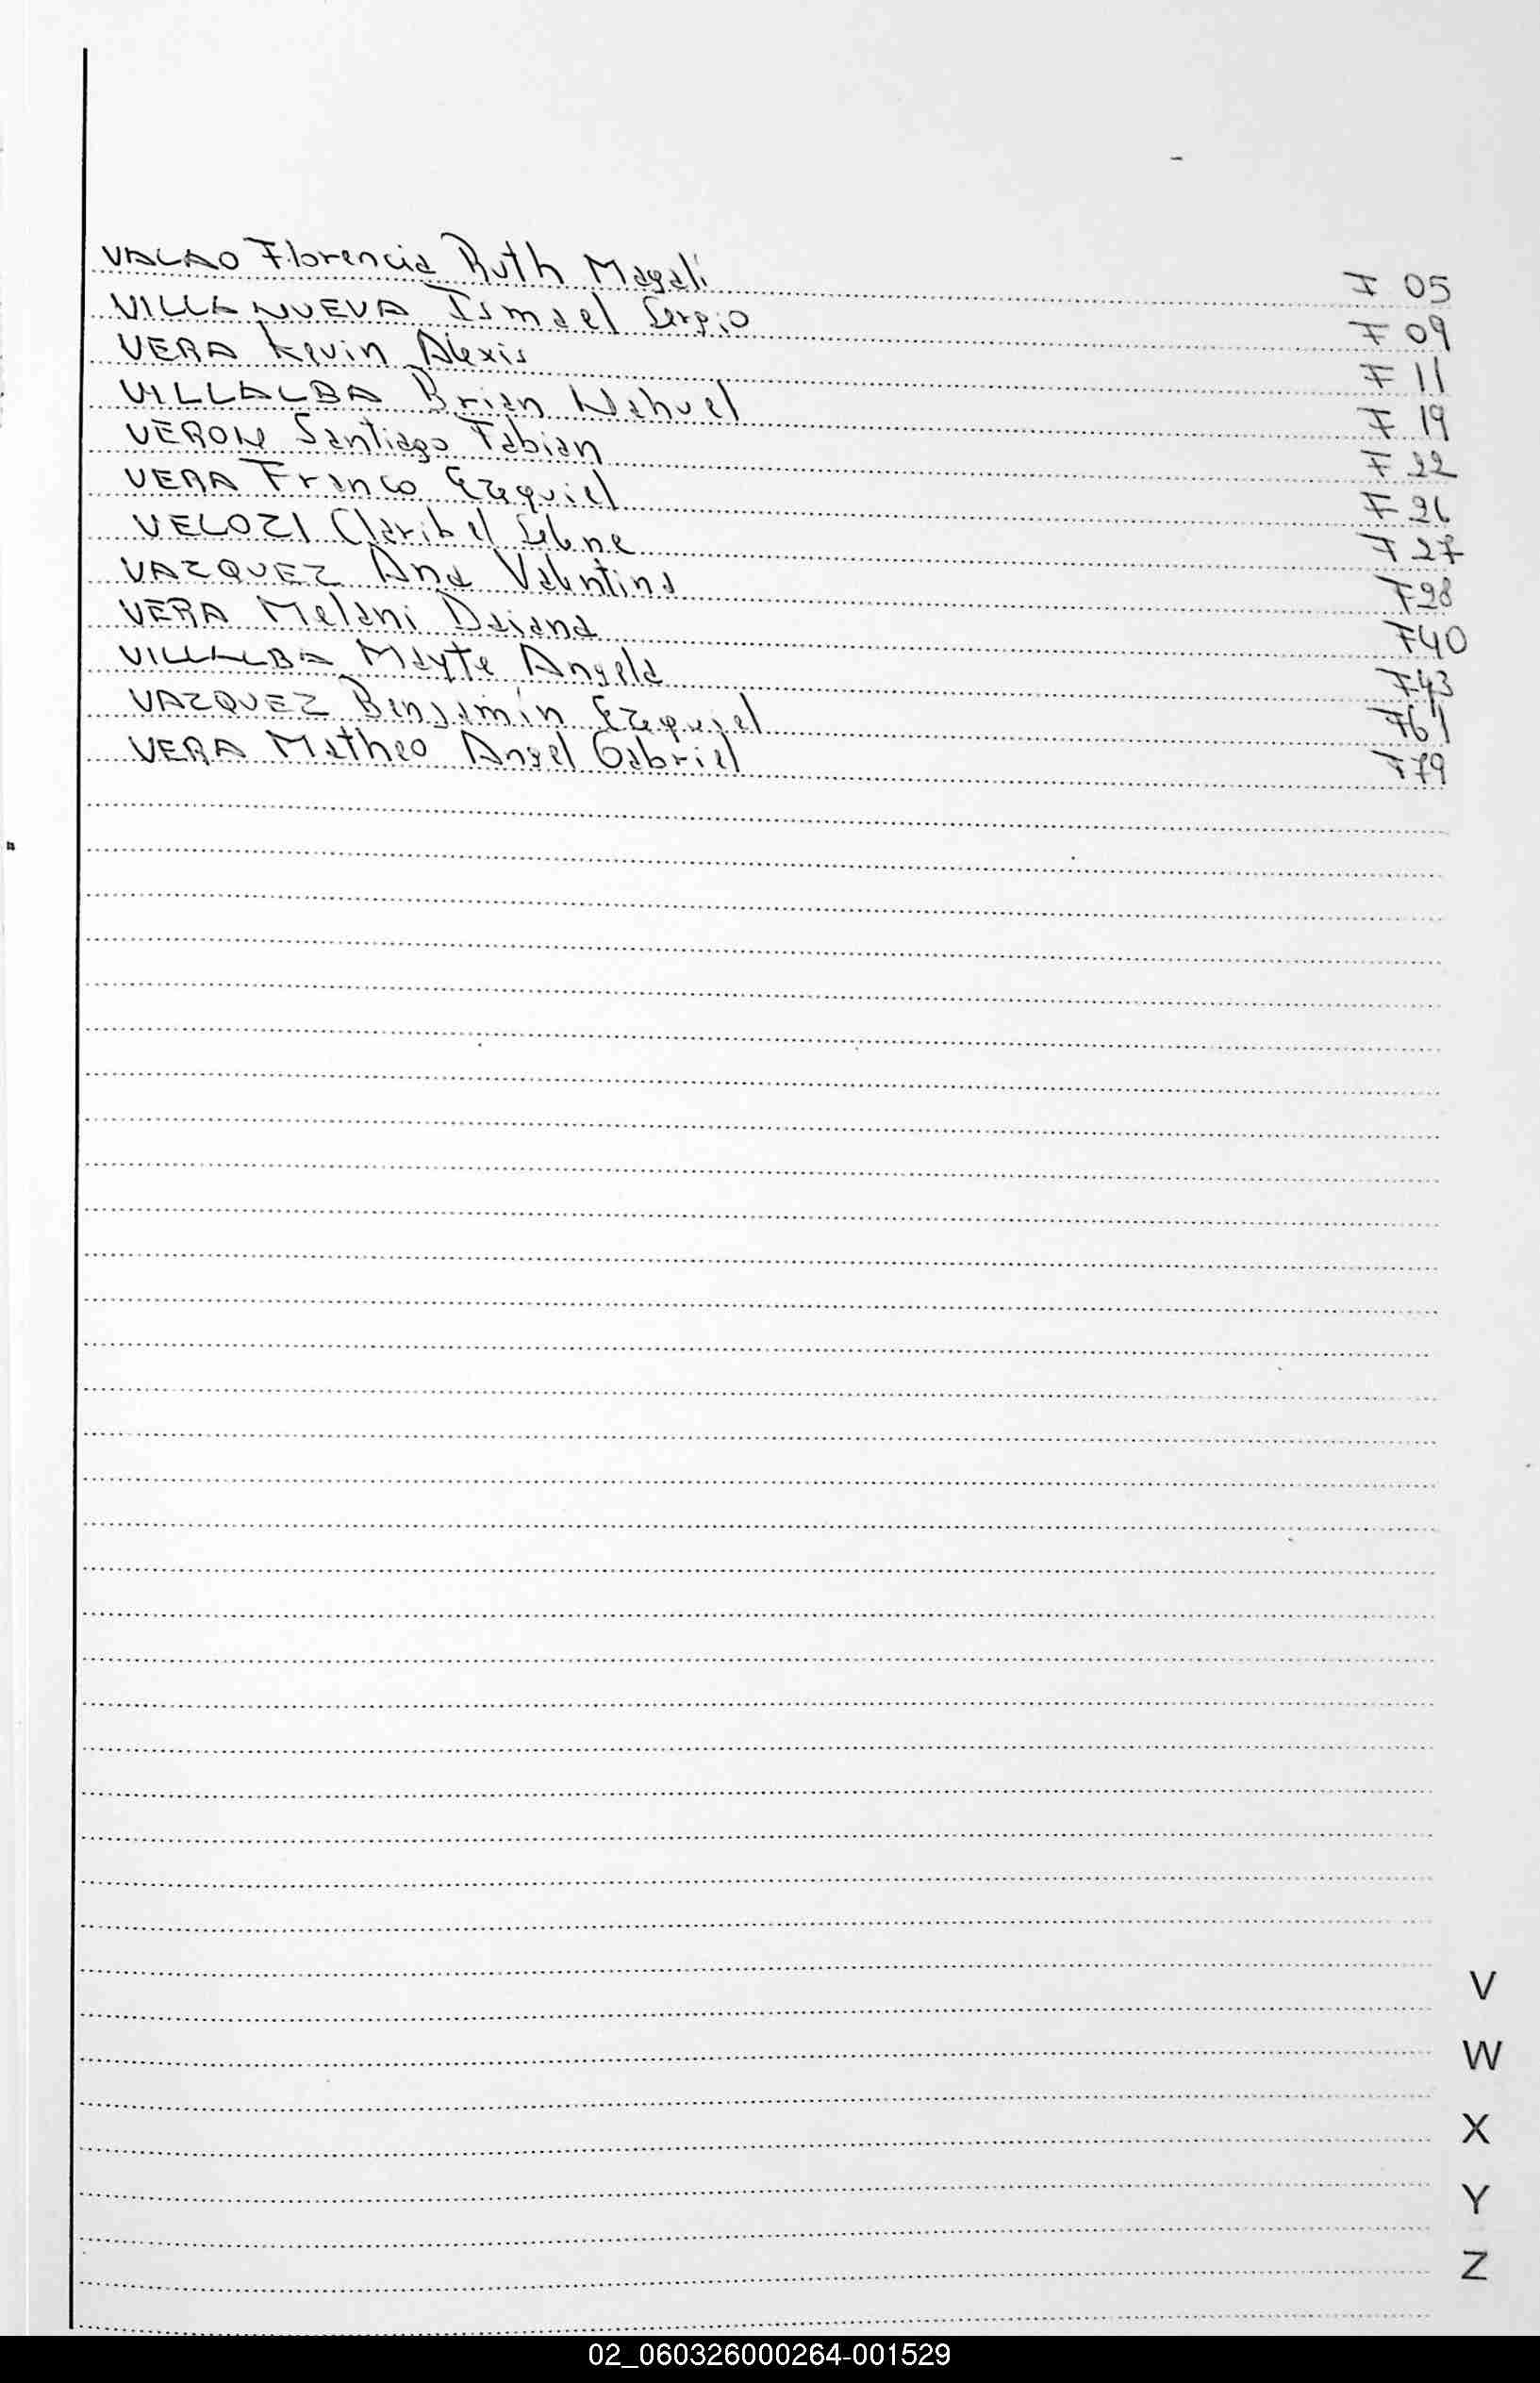 VALAO Florencia Ruth Magali F 05
VILLANUEVA Ismael Sergio F 09
VERA Kevin Alexis F 11
VILLALBA Brian Nahuel F 19
VERON Santiago Fabian F 22
VERA Franco Ezequiel F 26
VELOZI Claribel Selene F 27
VAZQUEZ Ana Valentina F28
VERA Melani Daiana F40
VILLALBA Mayte Angela F43
VAZQUEZ Benjamín Ezequiel F61
VERA Matheo Angel Gabriel F79
V
W
X
Y
Z
02_060326000264-001529